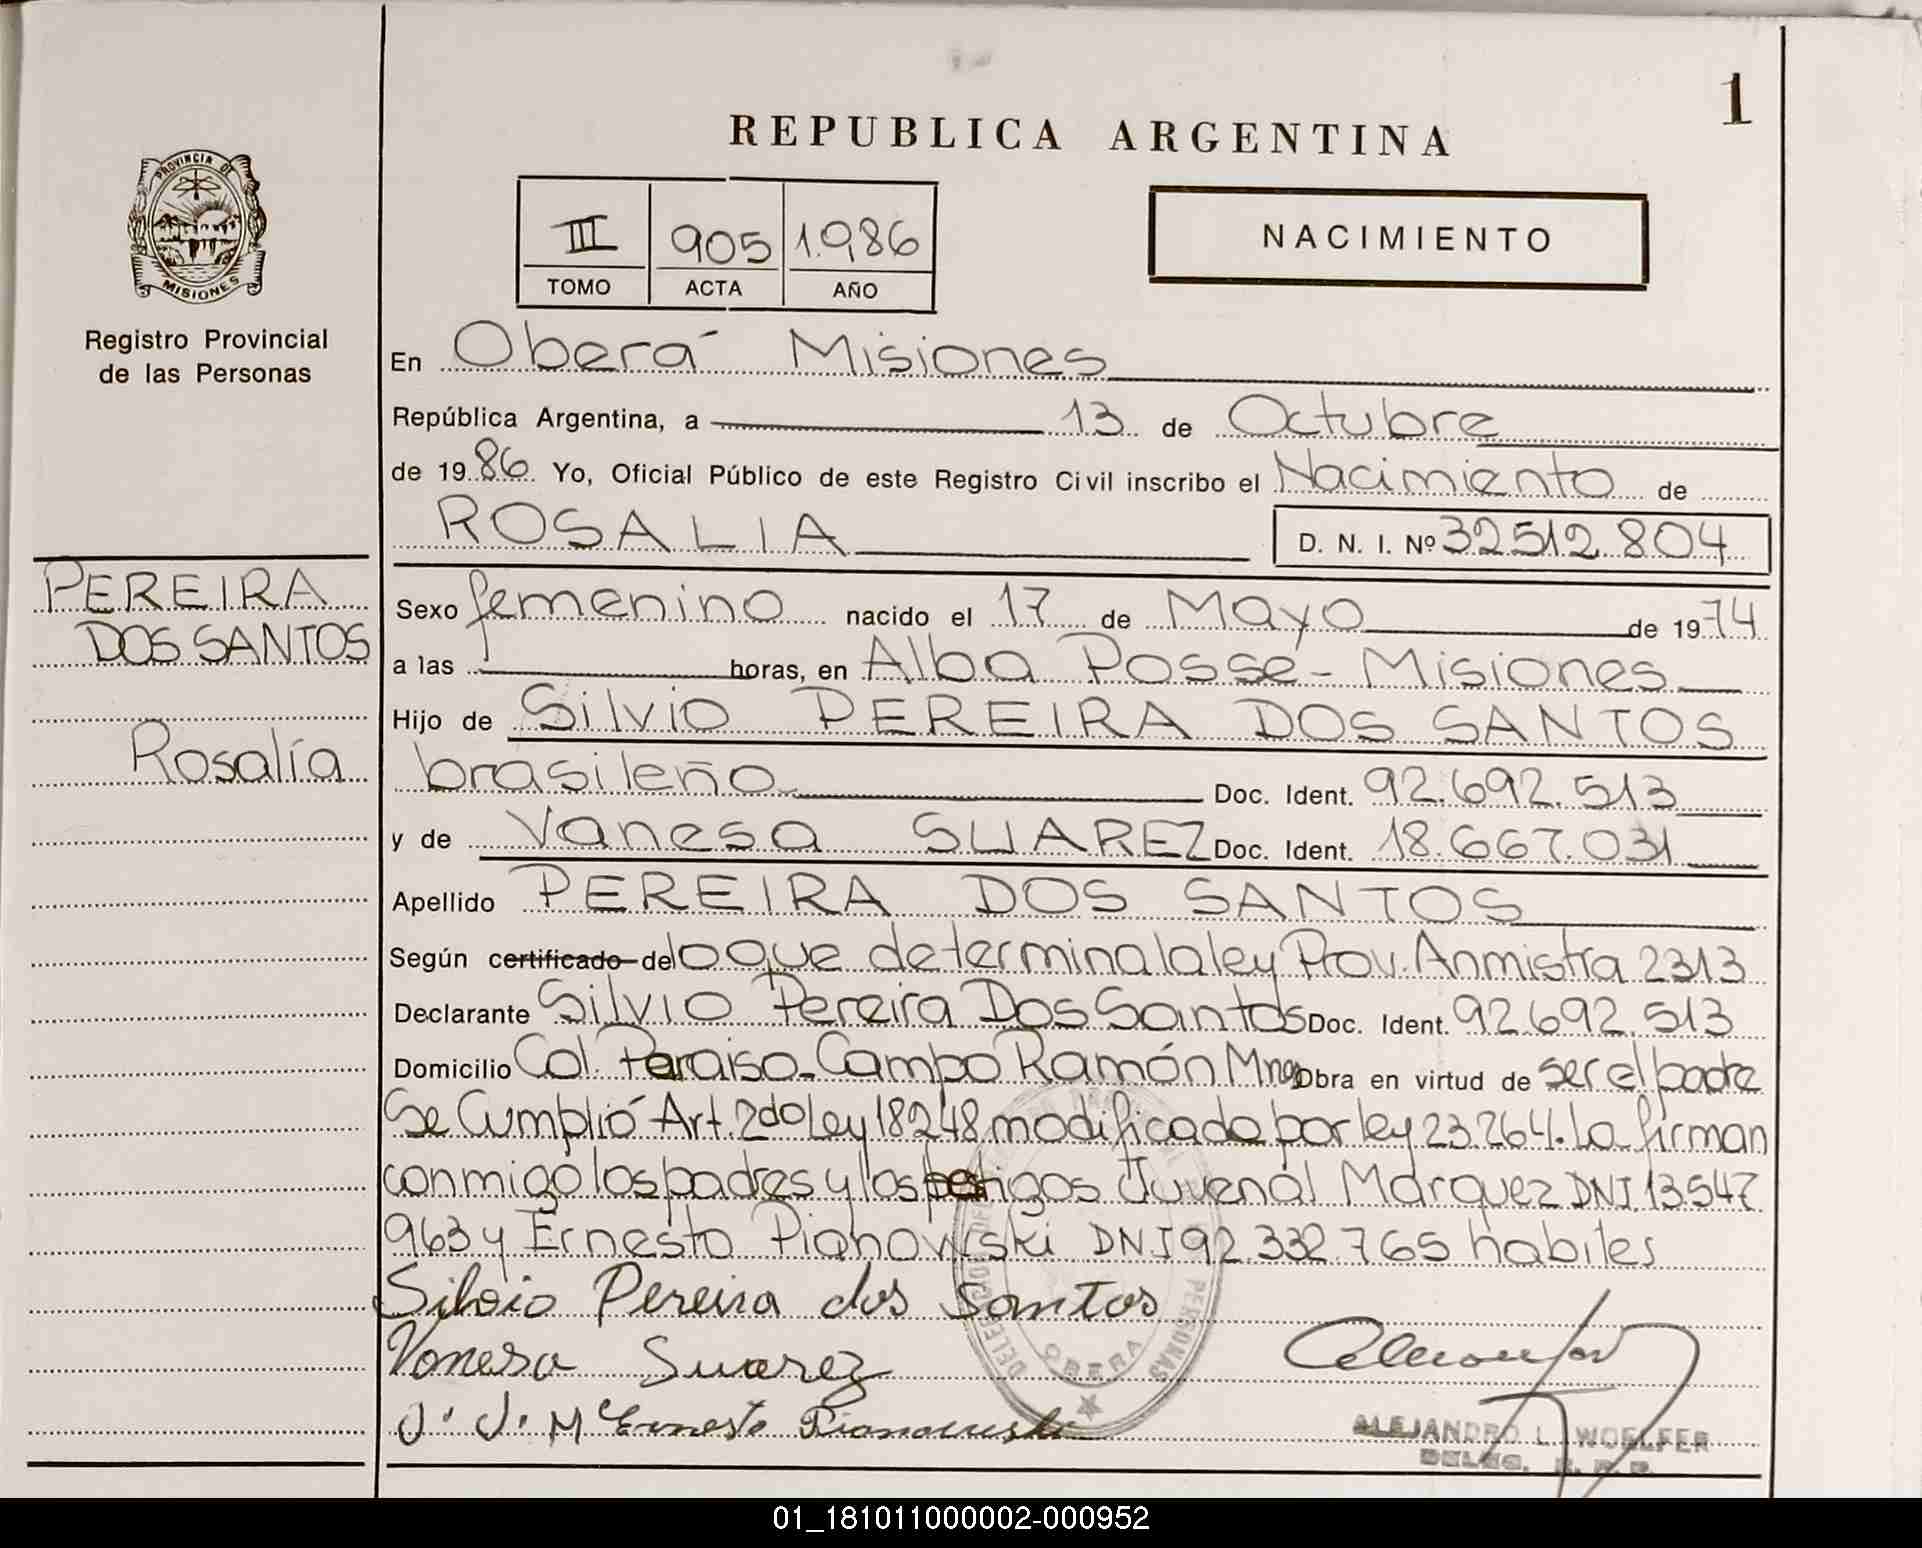 1
REPUBLICA ARGENTINA
PROVINCIA DE
MISIONES
Registro Provincial
de las Personas
III 905 1.986
TOMO ACTA AÑO
NACIMIENTO
En Oberá Misiones
República Argentina, a 13 de Octubre
de 1986 Yo, Oficial Público de este Registro Civil inscribo el Nacimiento de
ROSALIA D. N. I. Nº 32512.804
PEREIRA
DOS SANTOS
Rosalía
Sexo femenino nacido el 17 de Mayo de 1974
a las horas, en Alba Posse - Misiones
Hijo de Silvio PEREIRA DOS SANTOS
brasileño Doc. Ident. 92.692.513
y de Vanesa SUAREZ Doc. Ident. 18.667.031
Apellido PEREIRA DOS SANTOS
Según certificado de lo que determina la ley Prov. Anmistra 2313
Declarante Silvio Pereira Dos Santos Doc. Ident. 92.692.513
Domicilio Col. Paraiso - Campo Ramón Mnes Obra en virtud de ser el padre
Se Cumplió Art. 2do Ley 18248 modificado por ley 23.264. La firman
conmigo los padres y los testigos Juvenal Marquez DNI 13.547
963 y Ernesto Pianowski DNI 92.332.765 habiles
Silvio Pereira dos Santos
Vanesa Suarez
J. J. M Ernesto Pianowski
OBERA
PERSONAS
ALEJANDRO L. WOELFER
DELEG. R. P. P.
01_181011000002-000952